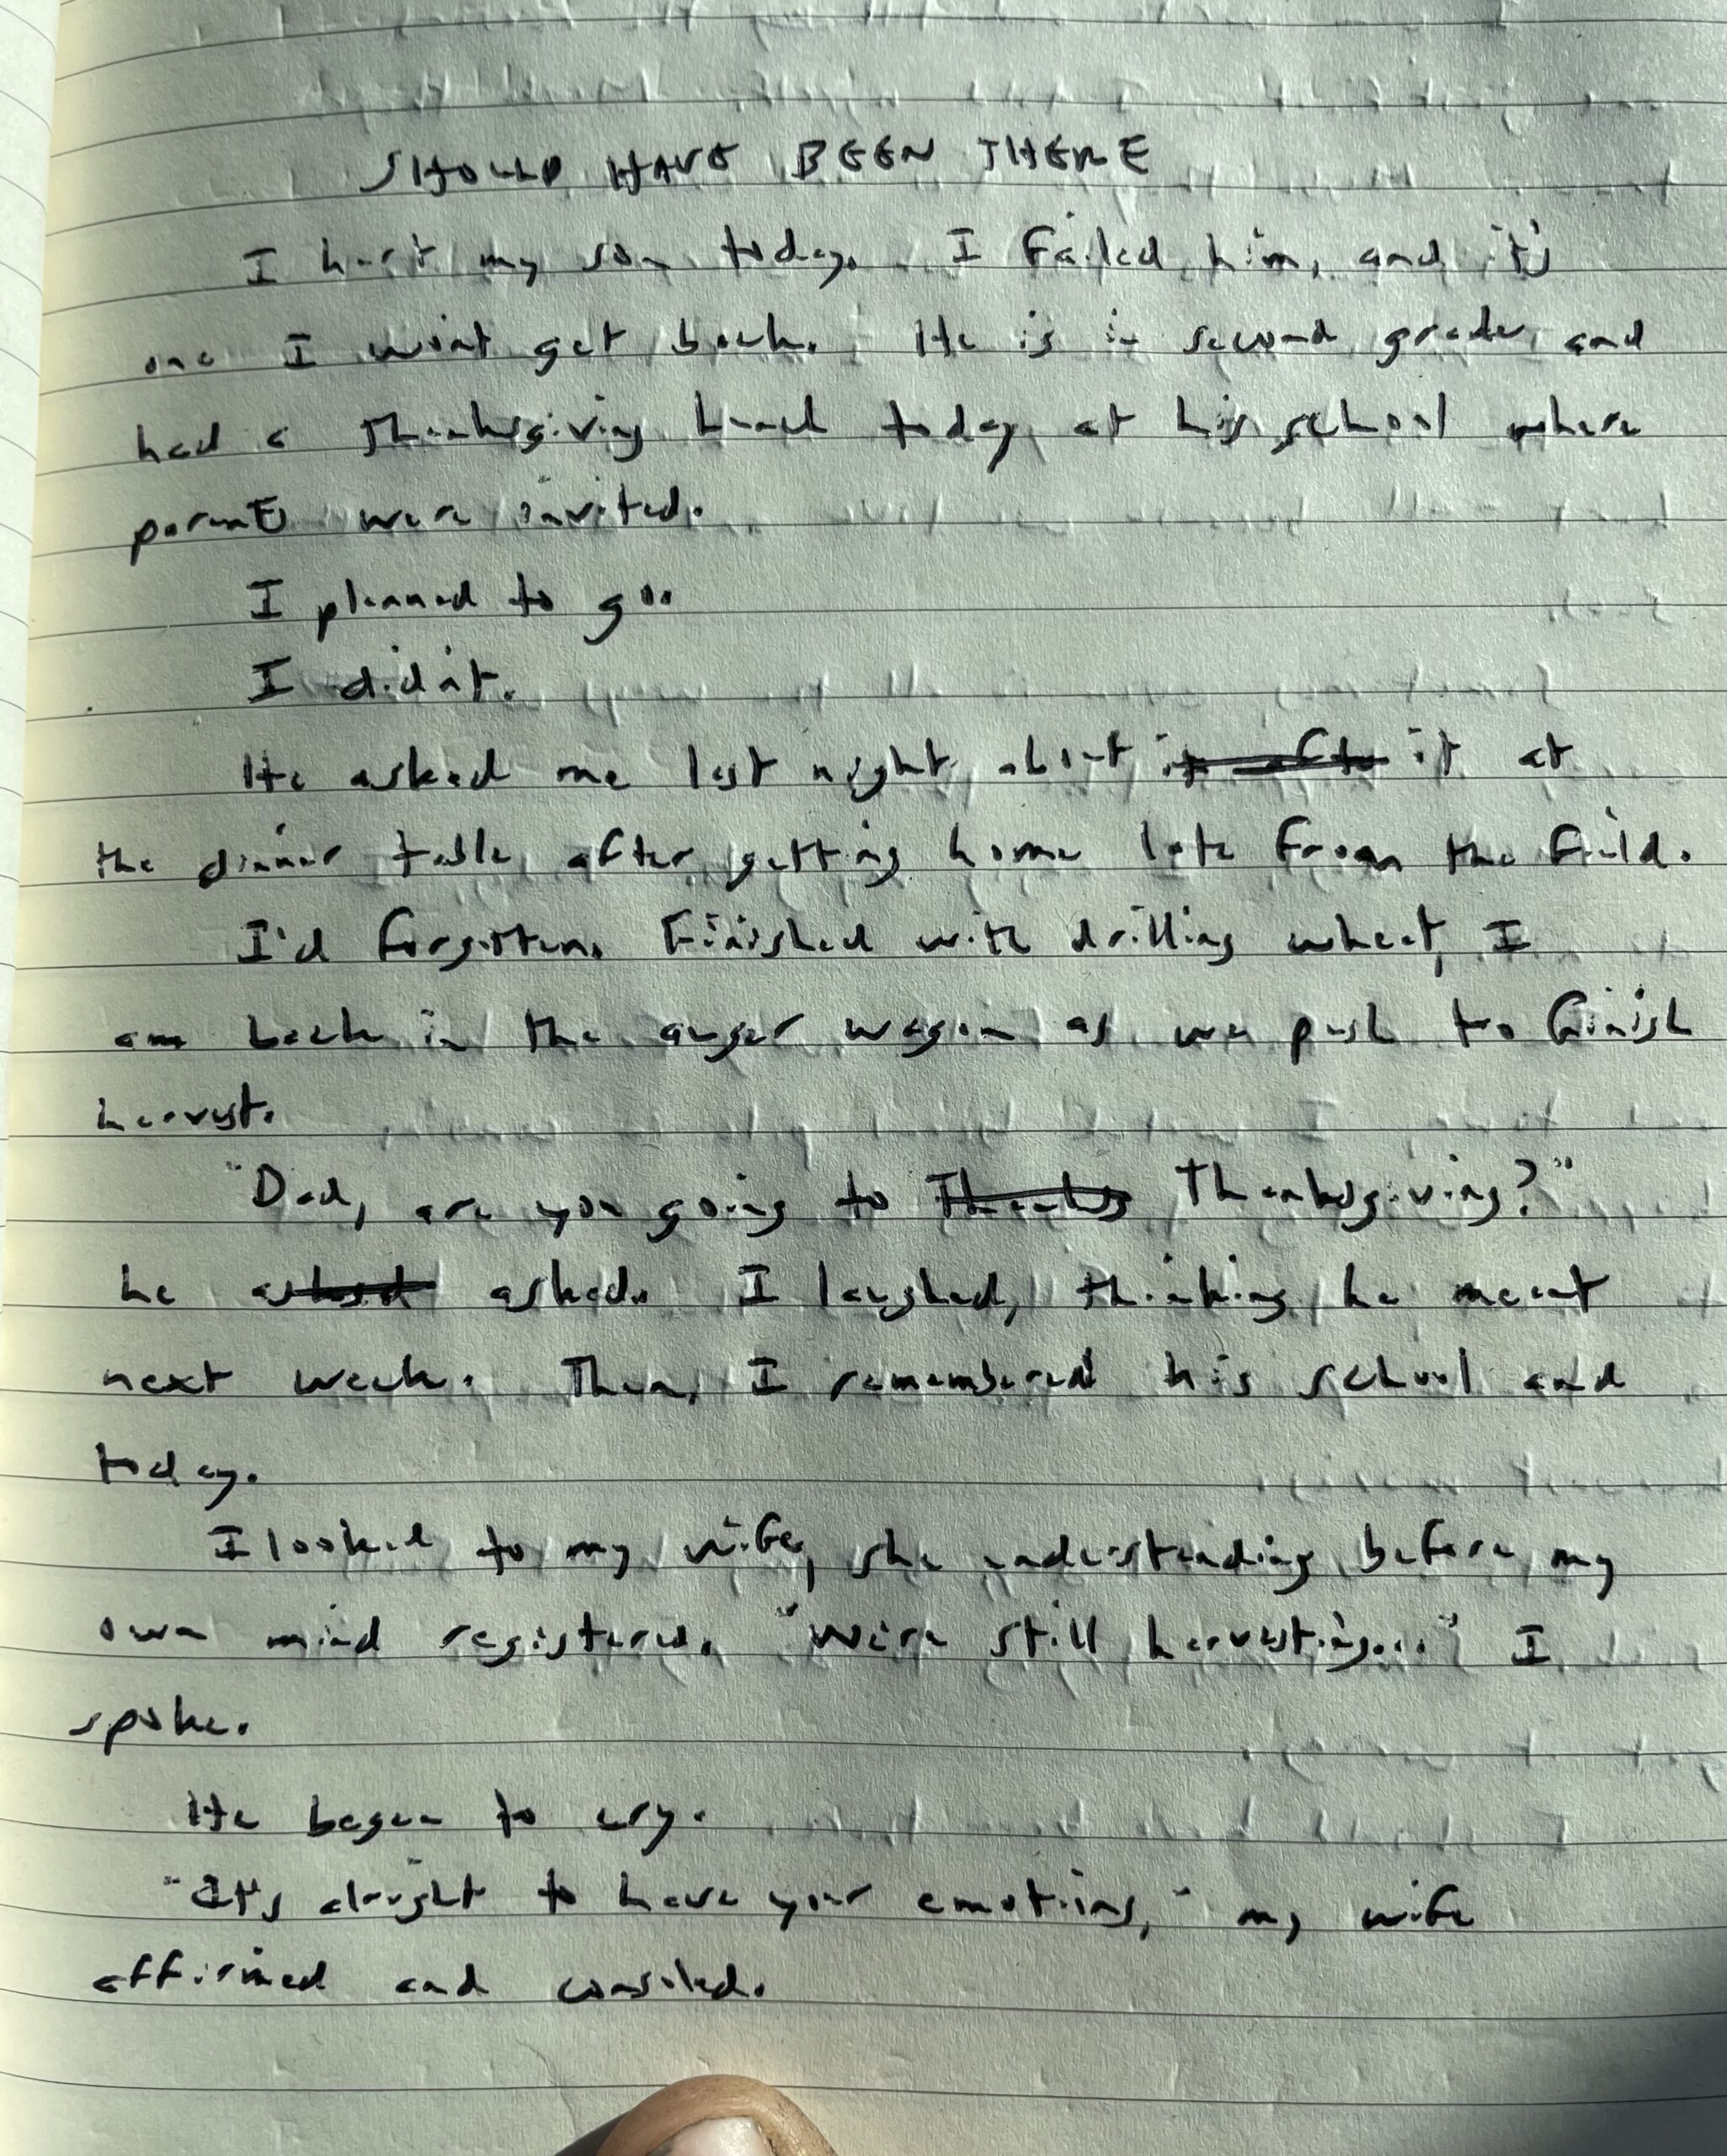 SHOULD HAVE BEEN THERE
I hurt my son today. I failed him, and it's
one I won't get back. He is in second grade, and
had a Thanksgiving lunch today at his school where
parents were invited.
I planned to go.
I didn't.
He asked me last night about it after it at
the dinner table, after getting home late from the field.
I'd forgotten. Finished with drilling wheat, I
am back in the auger wagon as we push to finish
harvest.
"Dad, are you going to Thanks Thanksgiving?"
he asked asked. I laughed, thinking he meant
next week. Then, I remembered his school and
today.
I looked to my wife, she understanding before my
own mind registered. "We're still harvesting..." I
spoke.
He began to cry.
"It's alright to have your emotions," my wife
affirmed and consoled.